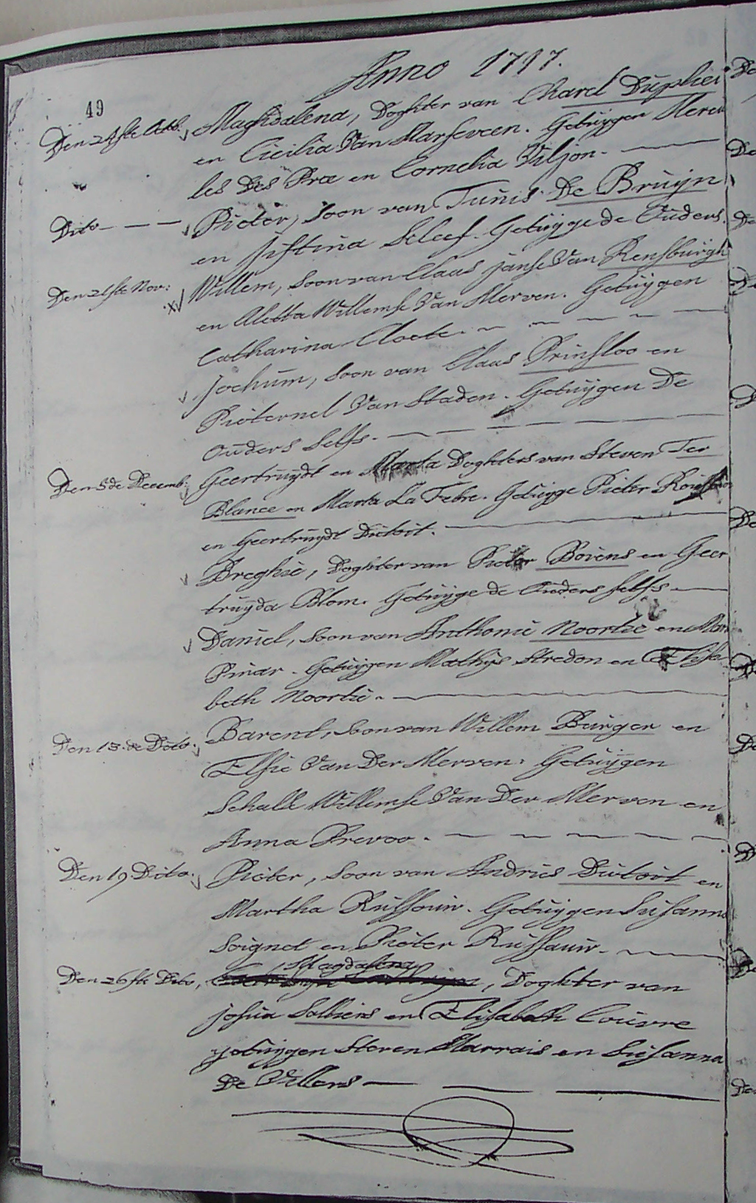 Anno 1717.
49
Den 24ste Octb. Maghdalena, Doghter van Charel Duplesi
en Cicilia Van Marseveen. Getuÿgen Hercu
les Des Pre en Cornelia Viljon.
Dito Pieter, Soon van Tunis De Bruÿn
en Jistina Seleef. Getuÿge de Ouders.
Den 21ste Nov: Willem, Soon van Claas Janse Van Rensburgh
en Aletta Willemse Van Merven. Getuÿgen
Catharina Cloete.
Jochum, Soon van Claas Prinsloo en
Pieternel Van Staden. Getuÿgen De
Ouders Selfs.
Den 5 de Decemb: Geertruÿdt en Marta Doghters van Steven Ter
Blance en Marta La Febre. Getuÿge Pieter
en Geertruÿdt Dutoit.
Breghie, Doghter van Pieter Boiens en Geer
truÿda Blom. Getuÿge de Ouders selfs
Daniel, Soon van Anthonie Noortie en
Pinar. Getuÿgen Mathÿs Stredon en Elisa
beth Noortie.
Den 13. de Dito, Barent, Soon van Willem Burger en
Elsie Van Der Merven. Getuÿgen
Schalk Willemse Van Der Merven en
Anna Prevoo.
Den 19 Dito. Pieter, Soon van Andries Dutoit en
Martha Russouw. Getuÿgen Susanna
Soignet en Pieter Russauw.
Magdalena
Den 26ste Dito, , Doghter van
Josua Selliers en Elisabeth Couvre
getuÿgen Steven Marrais en Susanna
De Villers